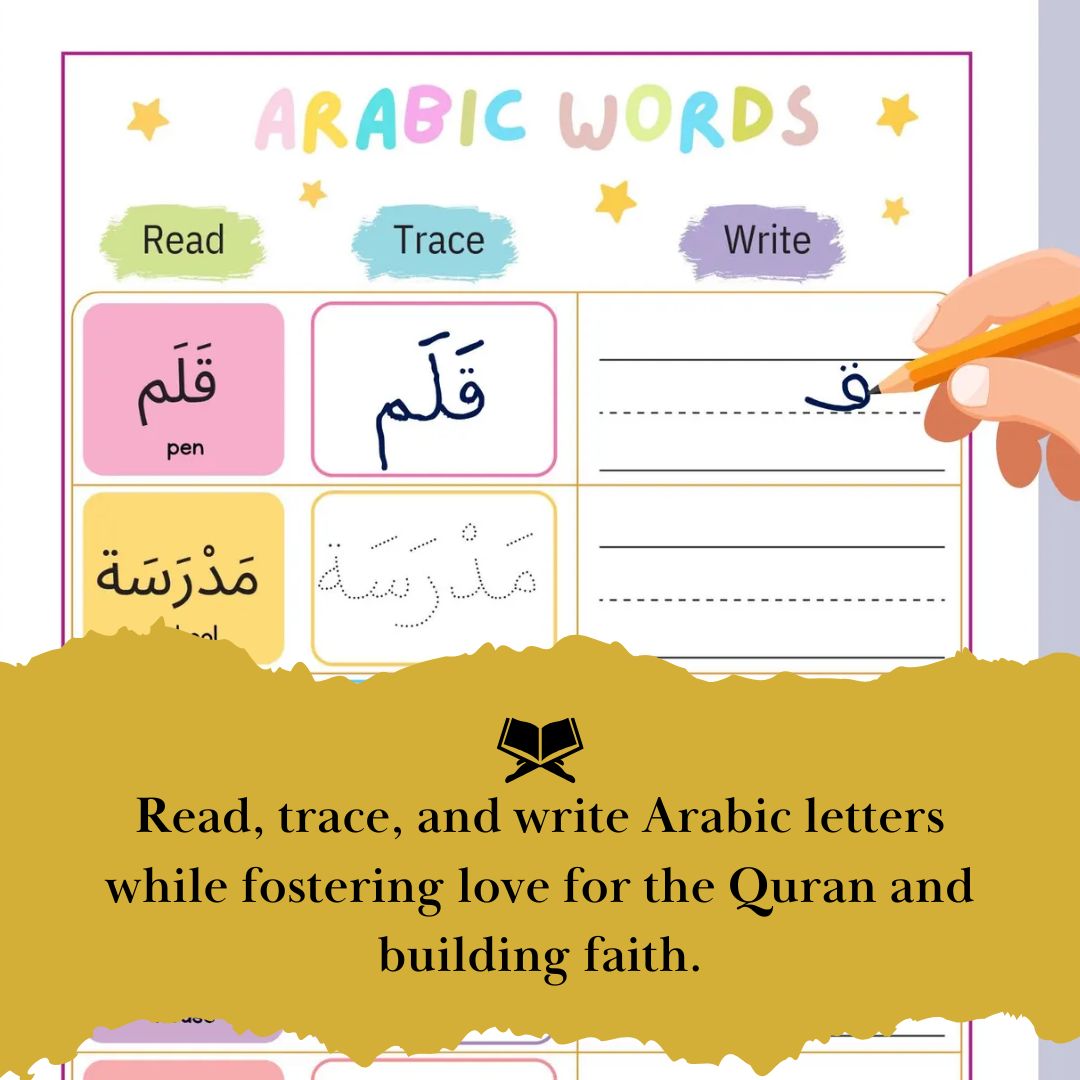 ARABIC WORDS
Read Trace Write
قَلَم قَلَم ق
pen
مَدْرَسَة مَدْرَسَة
Read, trace, and write Arabic letters
while fostering love for the Quran and
building faith.